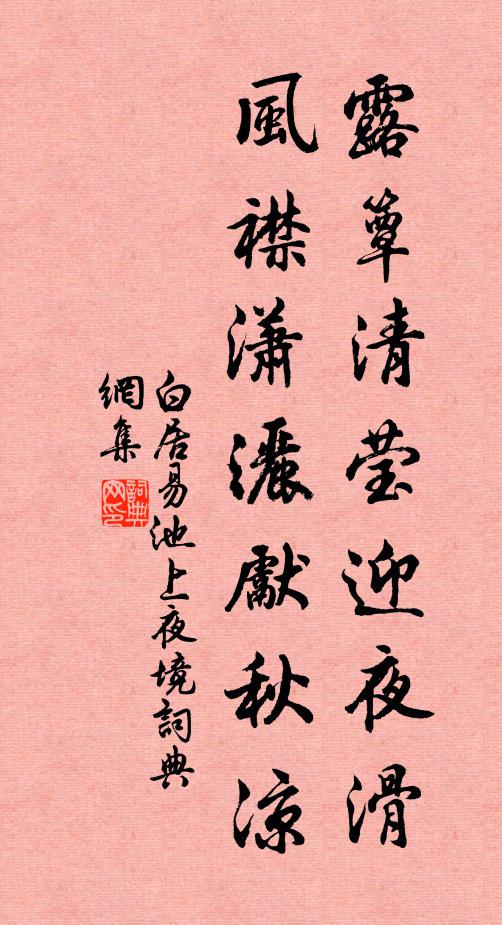 露簟清莹迎夜滑
風襟瀟灑獻秋涼
白居易池上夜境詞典
網集
詞典
网印